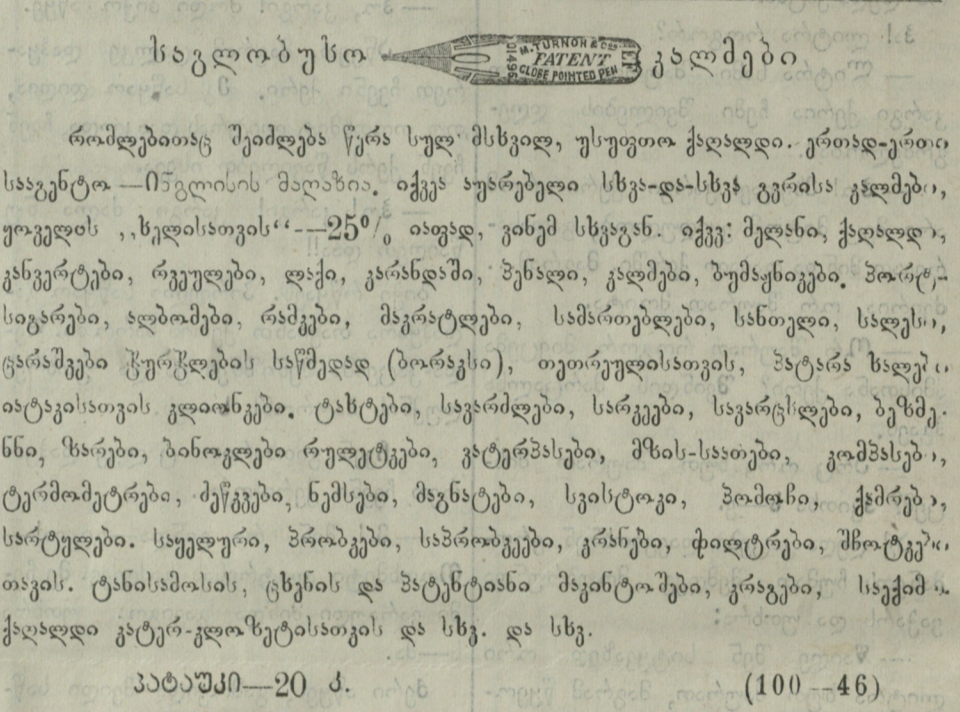 საგლობუსო M. TURNOR & Cos PATENT GLOBE POINTED PEN 01495 EF კალმები
რომლებითაც შეიძლება წერა სულ მსხვილ, უსუფთო ქაღალდი. ერთად-ერთი
სააგენტო—ინგლისის მაღაზია. იქვეა აუარებელი სხვა-და-სხვა გვრისა კალმები,
ყოველის ,,ხელისათვის“---25% იაფად, ვინემ სხვაგან. იქვვ: მელანი, ქაღალდი,
კანვერტები, რვეულები, ლაქი, კარანდაში, პენალი, კალმები, ბუმაჟნიკები. პორტ-
სიგარები, ალბომები, რამკები, მაკრატლები, სამართებლები, სანთელი, სალესი,
ცარაშვები ჭურჭლების საწმედად (ბორაკსი), თეთრეულისათვის, პატარა ხალები
იატაკისათვის კლიონკები. ტახტები, სავარძლები, სარკეები, სავარცხლები, ბეზმე-
ნნი, ზარები, ბინოკლები რულეტკები, ვატერპასები, მზის-საათები, კომპასები,
ტერმომეტრები, ძეწკვები, ნემსები, მაგნატები, სვისტოკი, პომოჩი, ქამრები,
სარტყლები. საყელური, პრობკები, საპრობკეები, კრანები, ფილტრები, შჩოტკები
თავის. ტანისამოსის, ცხენის და პატენტიანი მაკინტოშები, კრაგები, საექიმო
ქაღალდი კატერ-კლოზეტისათვის და სხვ. და სხვ.
პატაუკი—20 კ. (100—46)